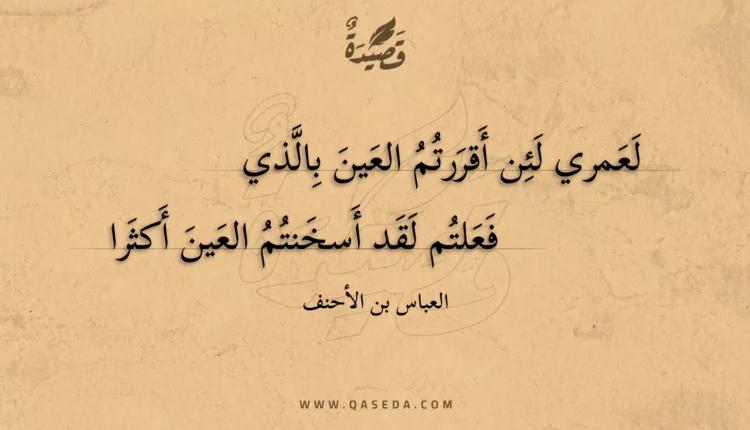 قَصِيْدَةٌ
لَعَمري لَئِن أَقرَرتُمُ العَينَ بِالَّذي
فَعَلتُم لَقَد أَسخَنتُمُ العَينَ أَكثَرا
العباس بن الأحنف
WWW.QASEDA.COM